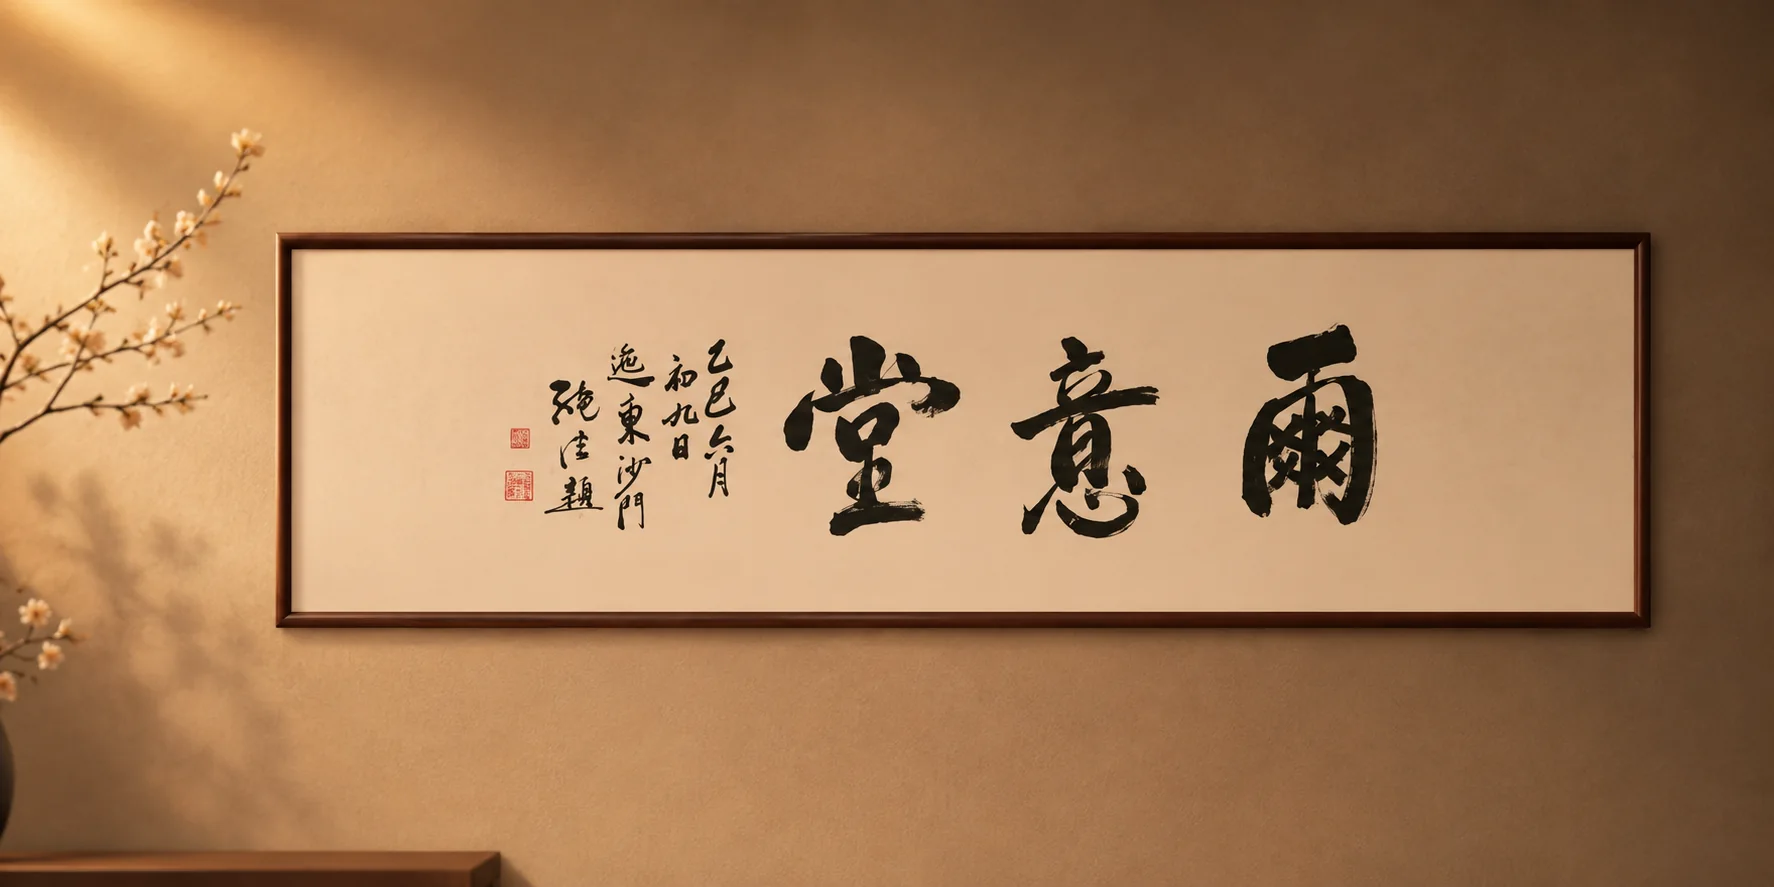 爾意堂
乙巳六月
初九日
迤東沙門
純法題